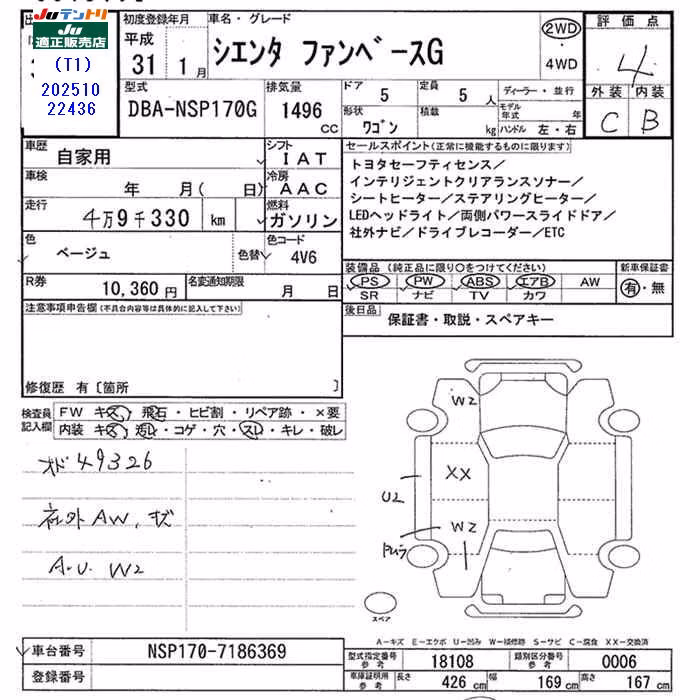 Juテントリ
Ju適正販売店
(T1)
202510
22436
初度登録年月
平成
31 1月
車名・グレード
シエンタ ファンベースG
2WD
・
4WD
評価点
4
外装 内装
C B
型式
DBA-NSP170G
排気量
1496
cc
ドア 5
形状 ワゴン
定員 5 人
積載 kg
ディーラー・並行
モデル年式 年
ハンドル 左・右
車歴
自家用
シフト
IAT
車検
年 月( 日)
冷房
AAC
走行
4万9千330 km
燃料
ガソリン
色
ベージュ
色替
色コード
4V6
R券
10,360円
名変通知期限
月 日
セールスポイント(正常に機能するものに限ります)
トヨタセーフティセンス/
インテリジェントクリアランスソナー/
シートヒーター/ステアリングヒーター/
LEDヘッドライト/両側パワースライドドア/
社外ナビ/ドライブレコーダー/ETC
装備品(純正品に限り○をつけてください)
PS PW ABS エアB AW
SR ナビ TV カワ
新車保証書
有・無
後日品
保証書・取説・スペアキー
注意事項申告欄(不具合内容等は具体的に記入して下さい)
修復歴 有〔箇所 〕
検査員記入欄
FW キズ・飛石・ヒビ割・リペア跡・×要
内装 キズ・汚れ・コゲ・穴・スレ・キレ・破レ
オド49326
社外AW、キズ
A・U W2
W2
XX
U2
W2
スペア
A-キズ E-エクボ U-凹み W-補修跡 S-サビ C-腐食 XX-交換済
車台番号
NSP170-7186369
登録番号
型式指定番号 参考
18108
類別区分番号 参考
0006
車庫証明用 参考
長さ 426cm
幅 169cm
高さ 167cm